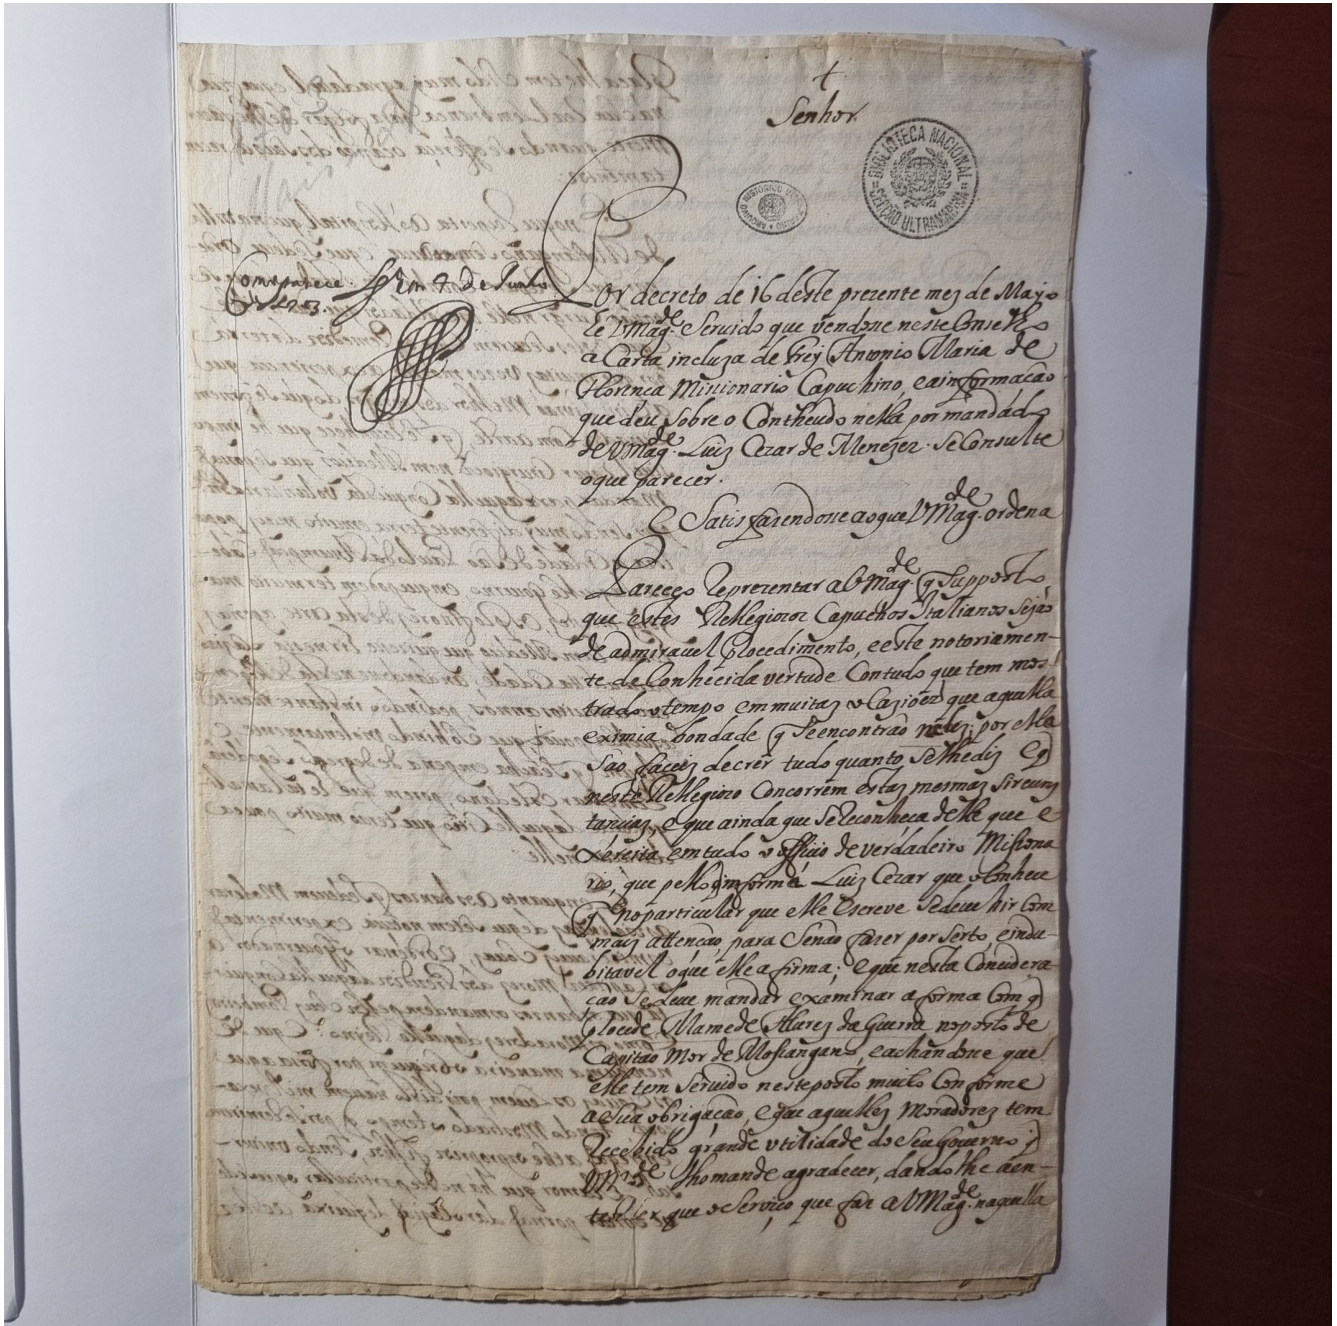 +
Senhor
BIBLIOTECA NACIONAL
SECÇÃO ULTRAMARINA
ARQUIVO HISTORICO
Como parece. Lxª em 4 de Junho
de 1703.
Por decreto de 16 deste prezente mez de Mayo
he VMag.de Servido que vendose neste Conselho
a Carta incluza de Frey Antonio Maria de
Florença Missionario Capuchino, e a informacão
que deu sobre o Contheudo nella por mandado
de VMag.de Luiz Cezar de Menezes. Se Consulte
o que parecer.
E Satisfazendose ao que VMag.de ordena
Pareceo Reprezentar a VMag.de q Supposto
que estes Relegiozos Capuchos Italianos Sejão
de admiravel procedimento, e este notoriamen-
te de Conhecida vertude Contudo que tem mos
trado o tempo em muitas ocaziões que aquella
eximia bondade q Se encontrão nelles, por ella
São faceis de crer tudo quanto Se lhe diz e q
neste Relegiozo Concorrem estas mesmas Sircuns
tancias, e que ainda que Se Reconheça delle que e
xeresia em tudo o officio de verdadeiro Misiona
rio, que pello informe Luiz Cezar que o Conhece
q no particular que elle escreve Se deve hir Com
mais attencão, para Senão fazer por Serto, e indu-
bitavel o que elle afirma; e que nesta Considera-
cão Se deve mandar examinar a forma Com q
procede Mamede Alvres da Guerra no posto de
Capitão Mor de Massangano, e achandose que
elle tem Servido neste posto muito Conforme
a Sua obrigacão, e que aquelles Moradores tem
Recebido grande utilidade do Seu Governo;
VMg.de lho mande agradecer, dandolhe a en-
tender que o Serviço que faz a VMag.de naquella